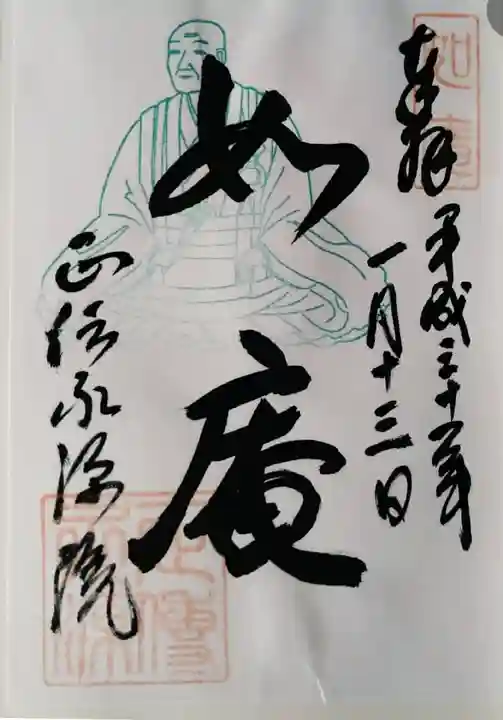 奉拝
平成三十一年
一月十三日
如庵
正伝永源院
如庵